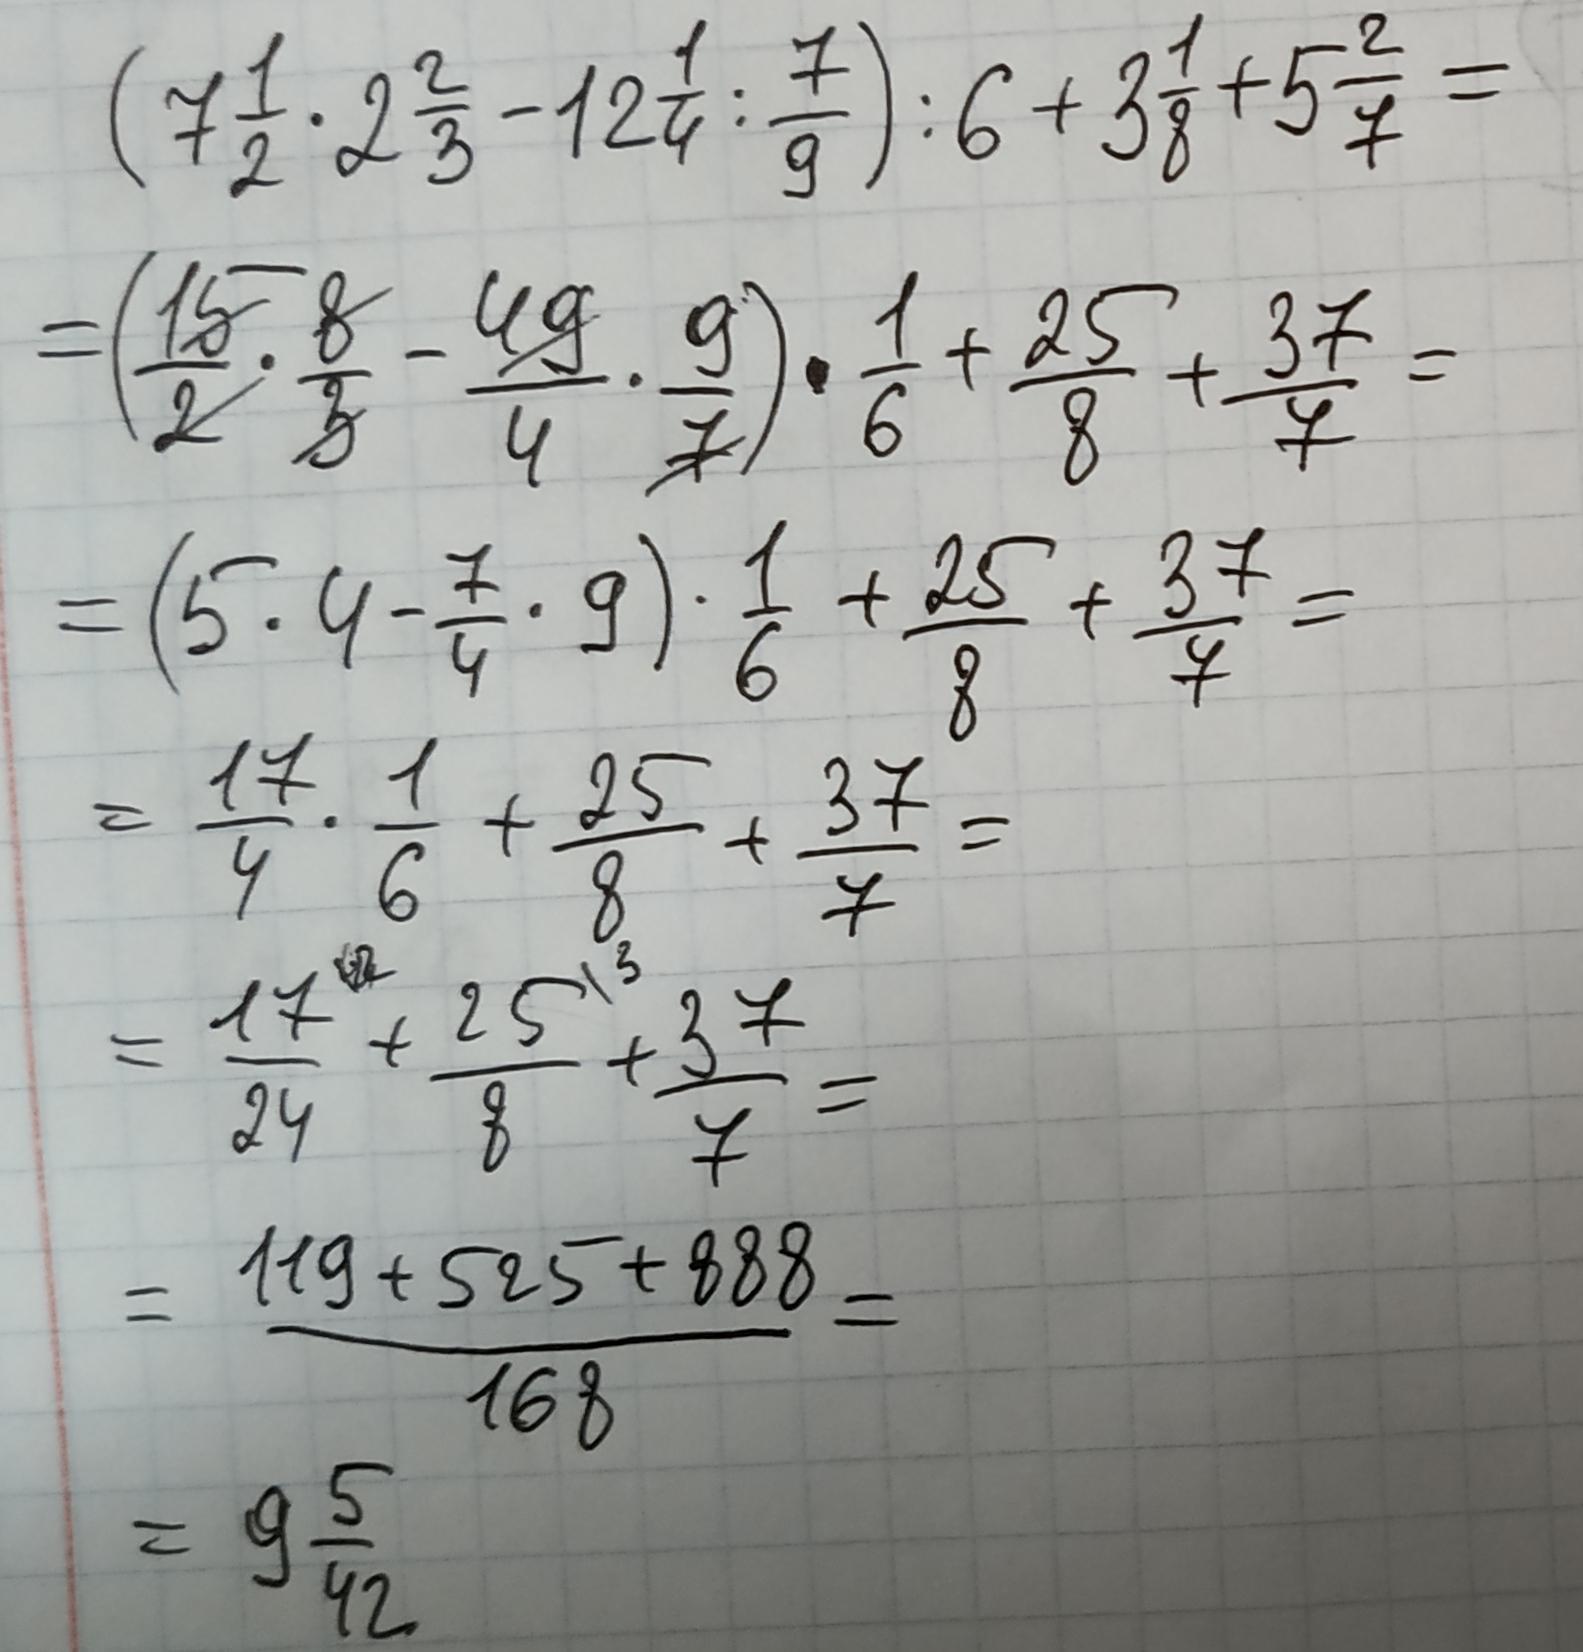 (7 1/2 · 2 2/3 - 12 1/4 : 7/9) : 6 + 3 1/8 + 5 2/7 =
= (15/2 · 8/3 - 49/4 · 9/7) · 1/6 + 25/8 + 37/7 =
= (5 · 4 - 7/4 · 9) · 1/6 + 25/8 + 37/7 =
= 17/4 · 1/6 + 25/8 + 37/7 =
= 17/24 + 25\3/8 + 37/7 =
= (119 + 525 + 888)/168 =
= 9 5/42